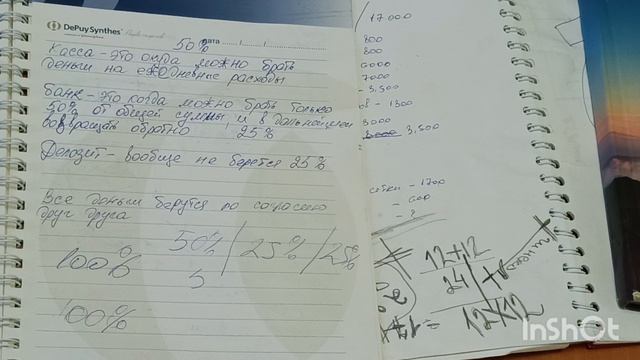 DePuySynthes
дата
50%
Касса - это когда можно брать
деньги на ежедневные расходы
Банк - это когда можно брать только
50% от общей суммы, и в дальнейшем
возвращать обратно 25%
Депозит - вообще не берется 25%
Все деньги берутся по согласию
друг друга
100% 50% / 25% / 25%
5
100%
17.000
800
800
6000
7000
- 3.500
- 1300
3000
3,500
- 1700
- 600
- ?
12+12
24
12
InShot